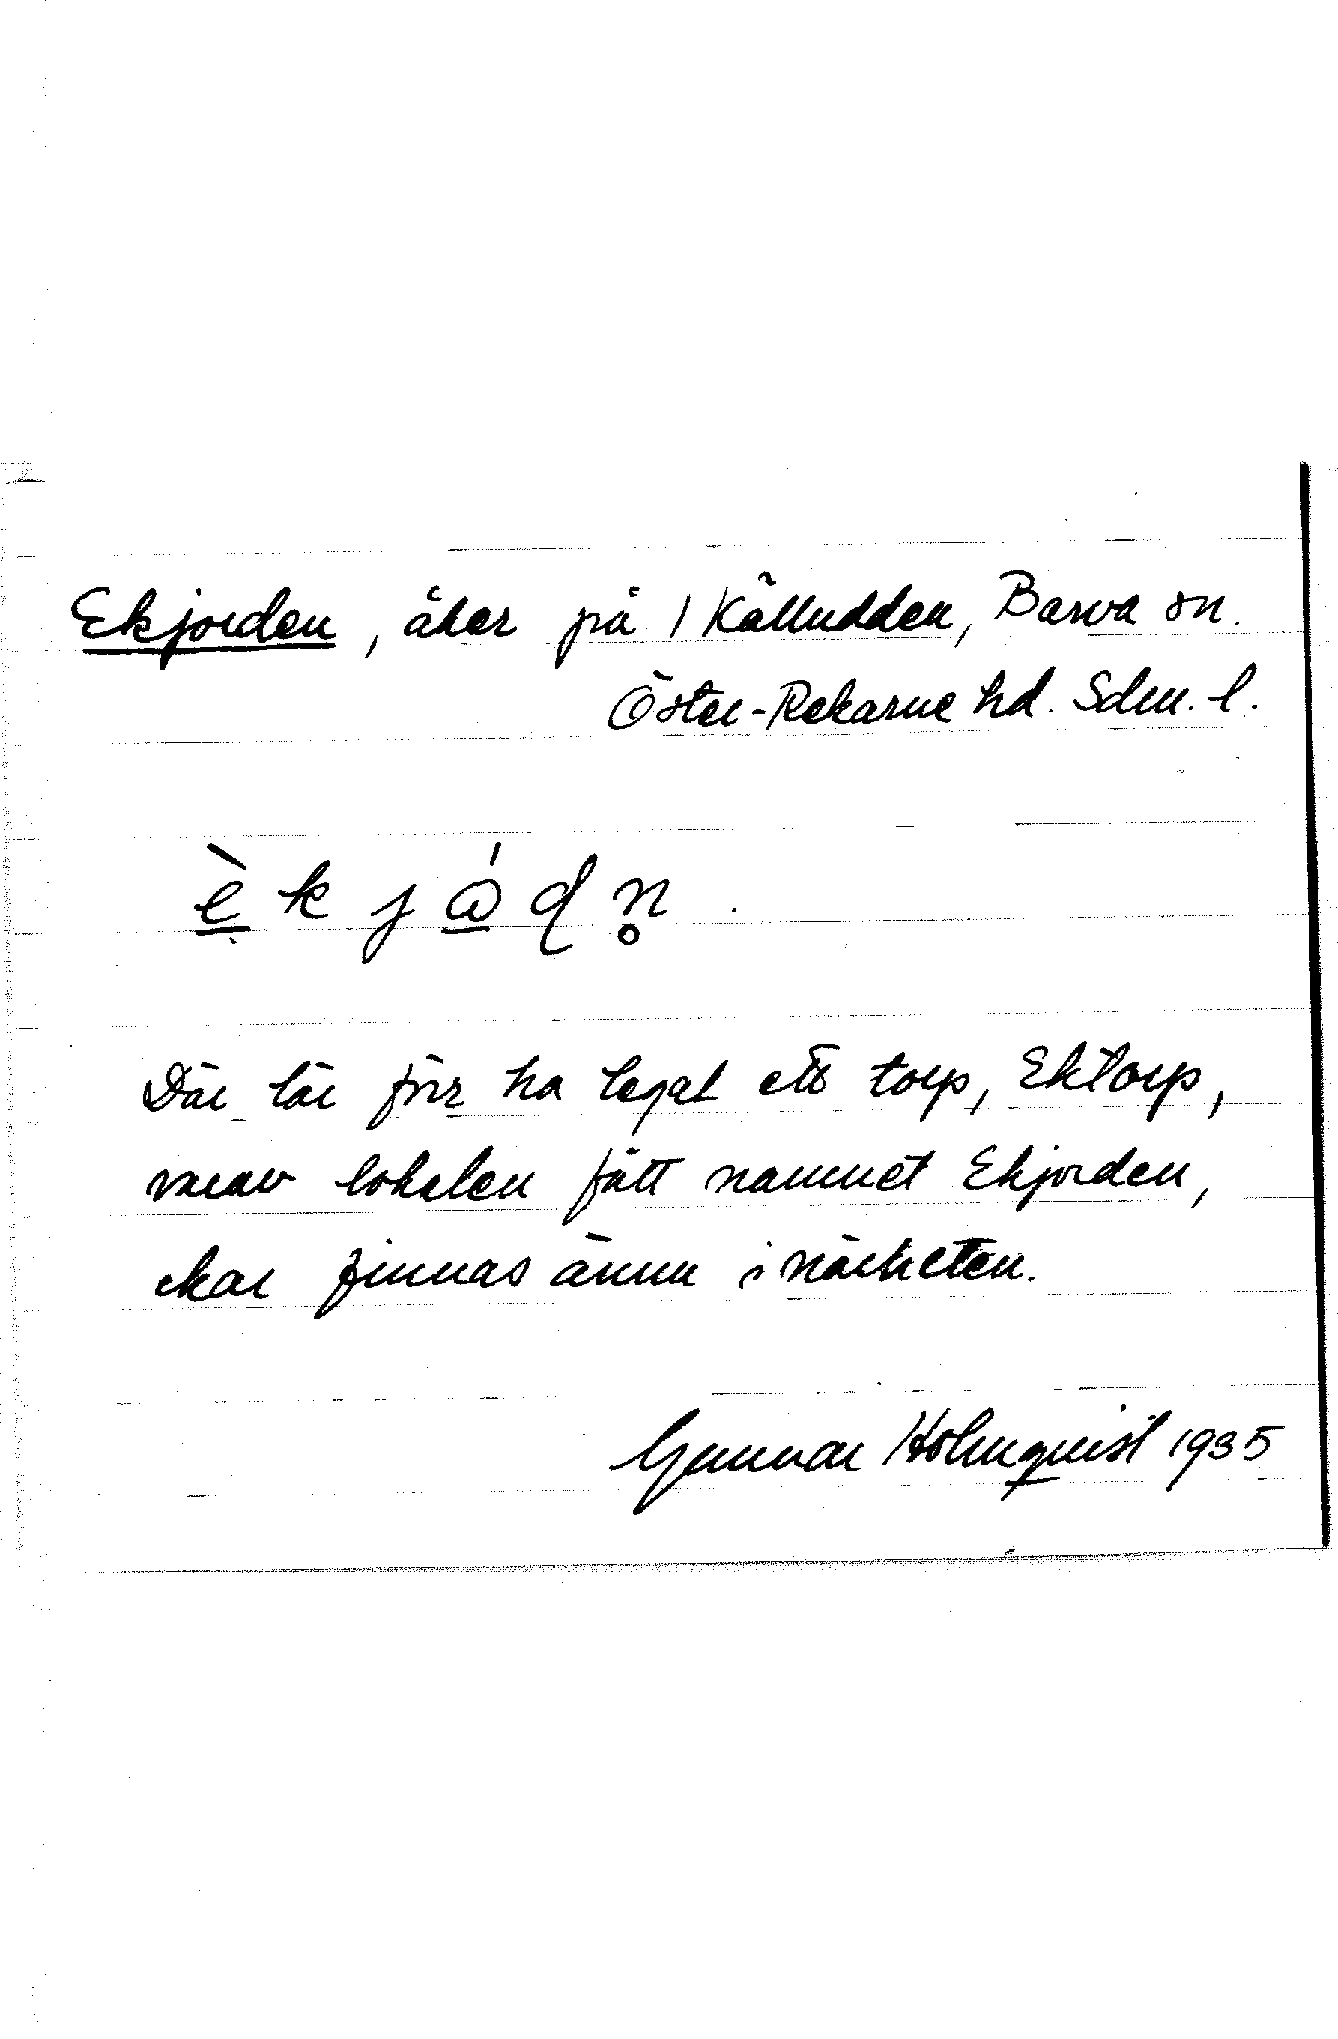 Ekjorden, åker på 1 Källudden, Barva sn.
Öster-Rekarne hd. Sdm. l.
è k j ώ ɖ n̥
Där lär förr ha legat ett torp, Ektorp,
varav lokalen fått namnet Ekjorden,
ekar finnas ännu i närheten.
Gunnar Holmquist 1935